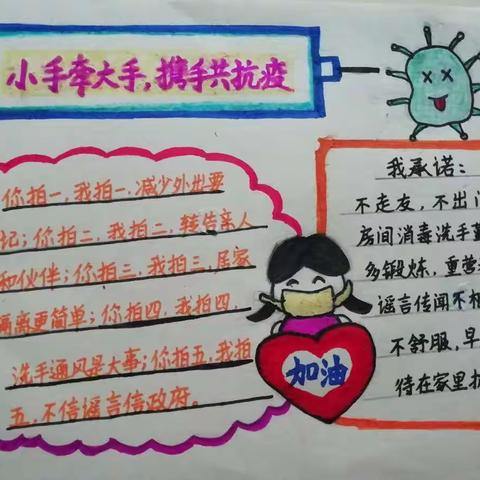 小手牵大手,携手共抗疫
你拍一,我拍一,减少外出要
记;你拍二,我拍二,转告亲人
和伙伴;你拍三,我拍三,居家
隔离更简单;你拍四,我拍四,
洗手通风是大事;你拍五,我拍
五,不信谣言信政府。
加油
我承诺:
不走友,不出门
房间消毒洗手
多锻炼,重营
谣言传闻不相
不舒服,早
待在家里抗